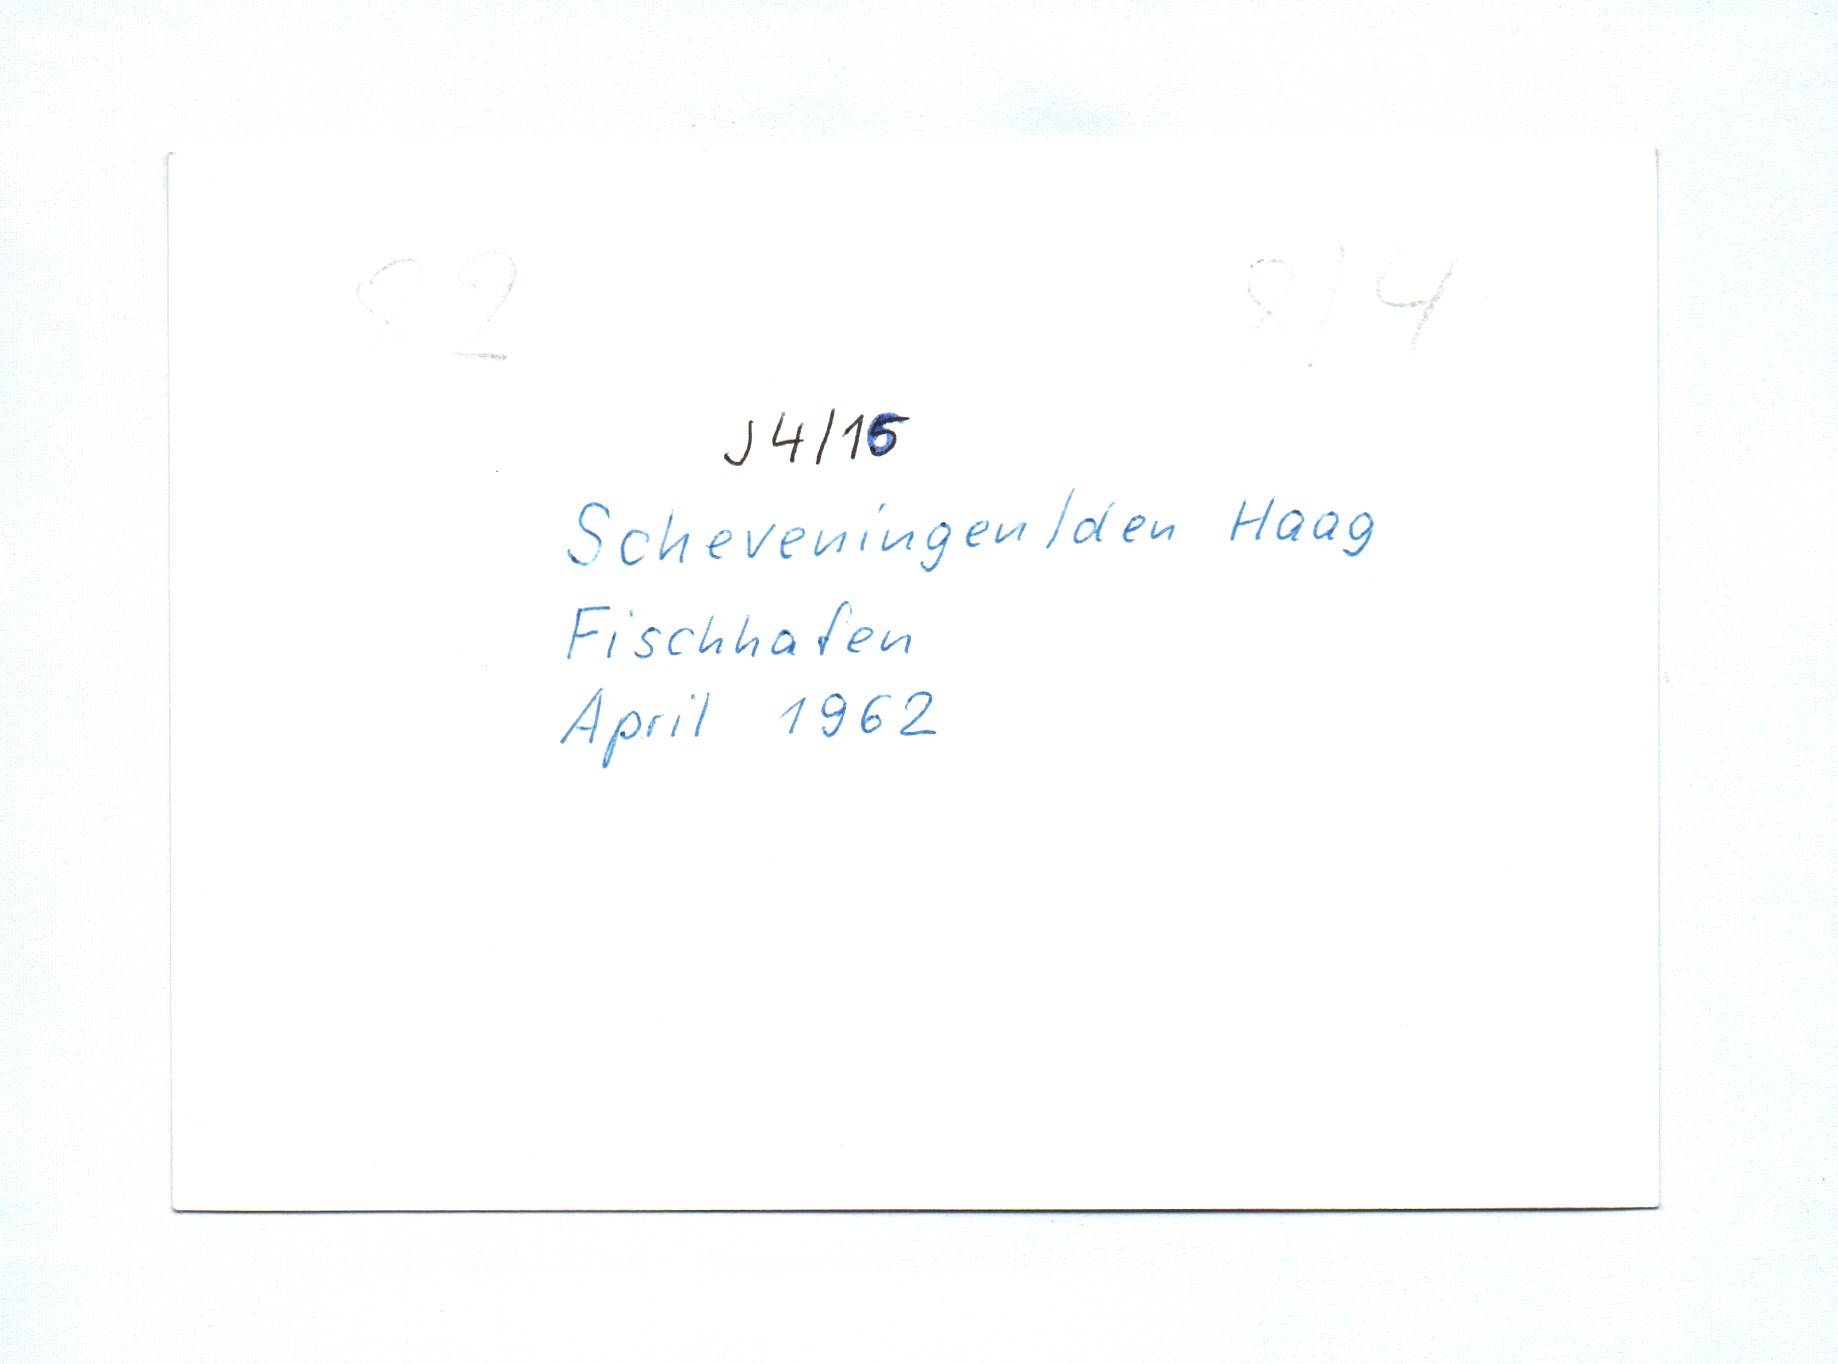 82 8/4
J4/16
Scheveningen/den Haag
Fischhafen
April 1962